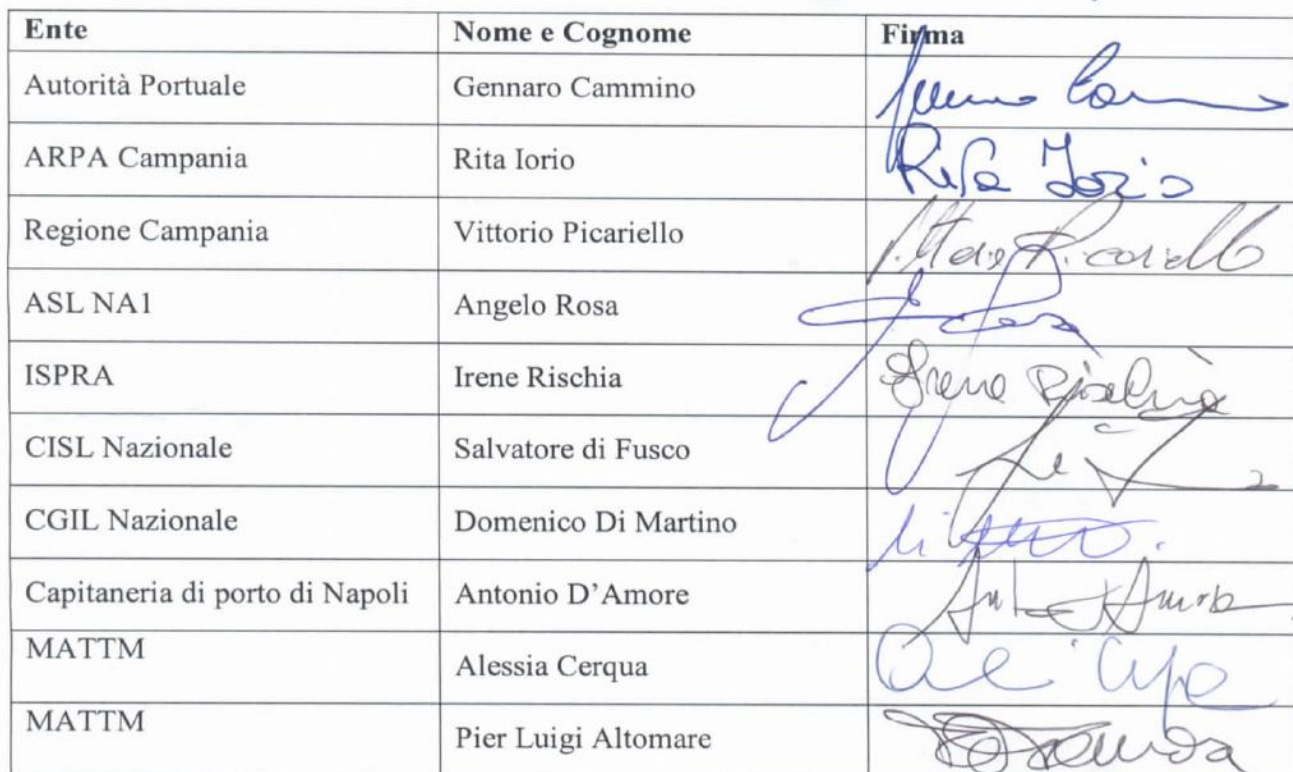 Ente Nome e Cognome Firma
Autorità Portuale Gennaro Cammino
ARPA Campania Rita Iorio Rita Iorio
Regione Campania Vittorio Picariello Picariello
ASL NA1 Angelo Rosa
ISPRA Irene Rischia Irene Rischia
CISL Nazionale Salvatore di Fusco
CGIL Nazionale Domenico Di Martino
Capitaneria di porto di Napoli Antonio D'Amore
MATTM Alessia Cerqua
MATTM Pier Luigi Altomare